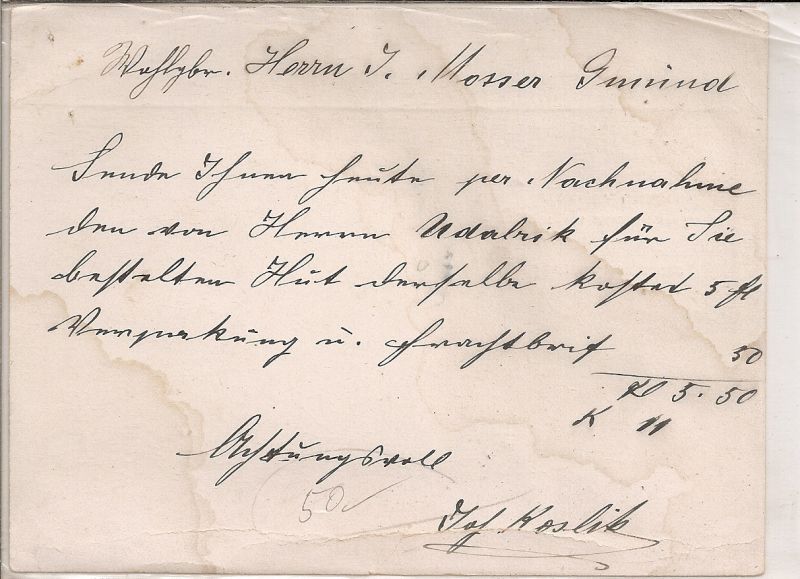 Wohlgbr. Herrn J. Mosser Gmünd
Sende Ihnen heute per Nachnahme
den von Herrn Udalrik für Sie
bestelten Hut derselbe kostet 5 fl
Verpakung u. Frachtbrif 50
fl 5. 50
K 11
Achtungsvoll
50
Jos. Koslik